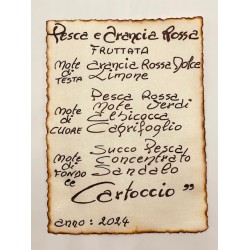 Pesca e Arancia Rossa
FRUTTATA
Note di TESTA
Arancia Rossa Dolce
Limone
Note di CUORE
Pesca Rossa
Note Verdi
Albicocca
Caprifoglio
Note di FONDO
Succo Pesca
Concentrato
Sandalo
Cartoccio "
anno: 2024